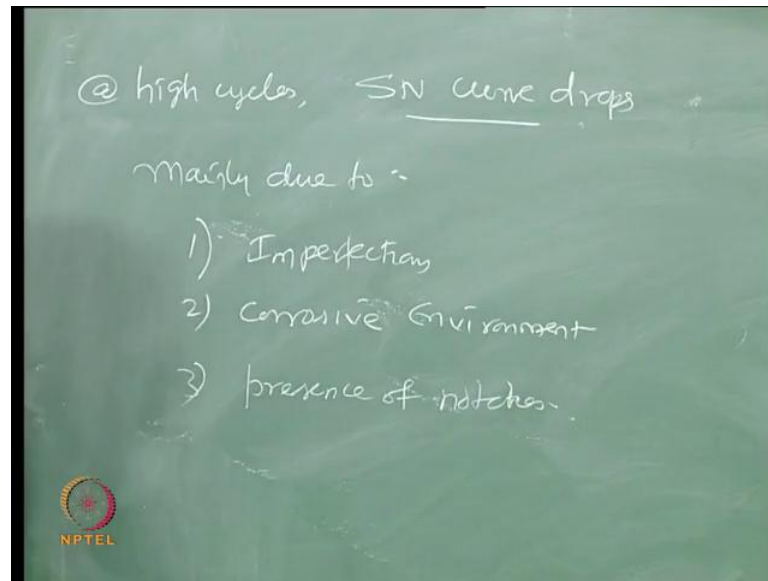 @ high cycles, SN curve drops
Mainly due to :-
1) Imperfections
2) Corrosive Environment
3) presence of notches.
NPTEL